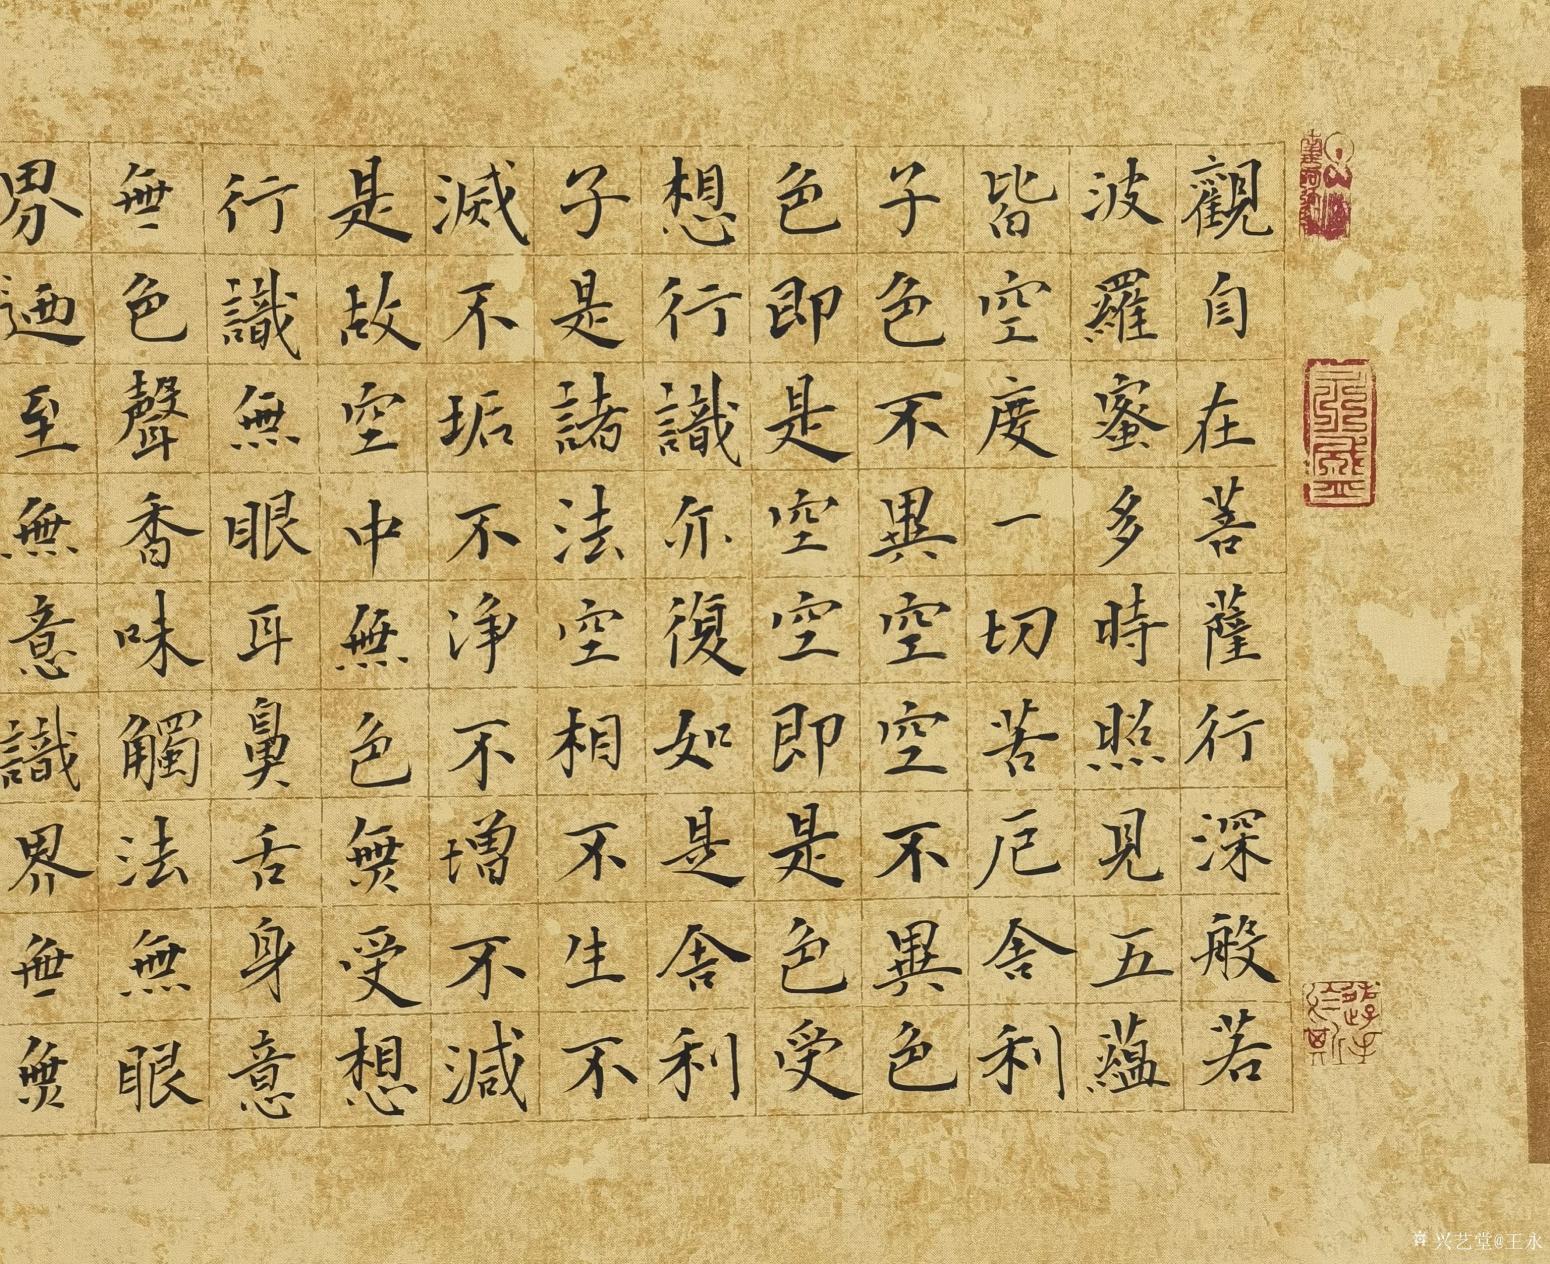 觀自在菩薩行深般若
波羅蜜多時照見五蘊
皆空度一切苦厄舍利
子色不異空空不異色
色即是空空即是色受
想行識亦復如是舍利
子是諸法空相不生不
滅不垢不浄不增不減
是故空中無色無受想
行識無眼耳鼻舌身意
無色聲香味觸法無眼
界迺至無意識界無無
兴艺堂@王永